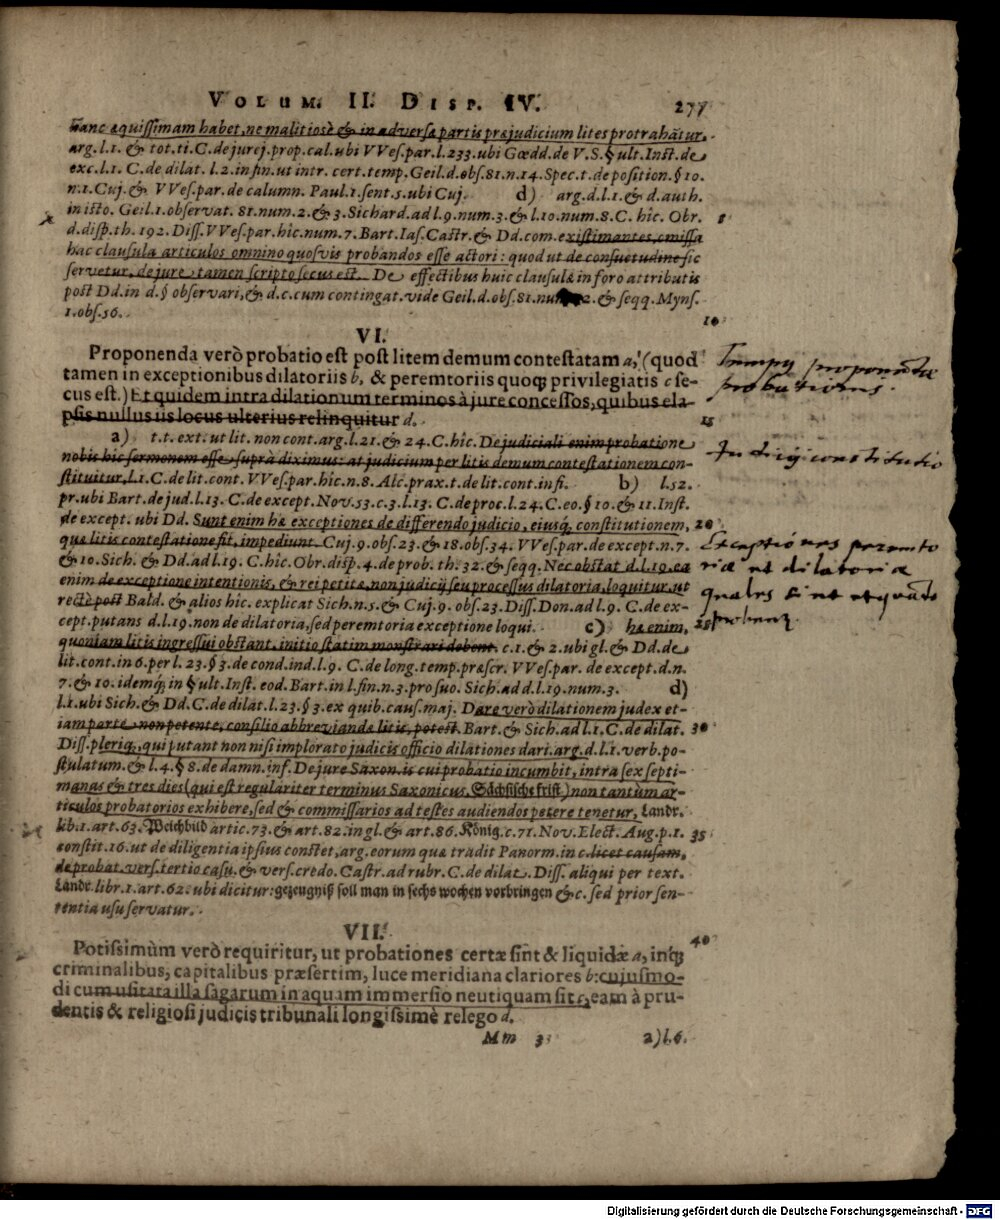 VOLUM. II. DISP. IV. 277
hanc æquiſſimam habet, ne malitioſè & in adverſæ partis præjudicium lites protrahātur.
arg. l. 1. & tot. ti. C. de jurej. prop. cal. ubi VVeſ. par. l. 233. ubi Gœdd. de V. S. § ult. Inſt. de
exc. l. 1. C. de dilat. l. 2. in fin. ut intr. cert. temp. Geil. d. obſ. 81. n. 14. Spec. t. de poſition. § 10.
n. 1. Cuj. & VVeſ. par. de calumn. Paul. 1. ſent. 5. ubi Cuj. d) arg. d. l. 1. & d. auth.
in iſto. Geil. 1. obſervat. 81. num. 2. & 3. Sichard. ad l. 9. num. 3. & l. 10. num. 8. C. hîc. Obr.
d. diſp. th. 192. Diſſ. VVeſ. par. hîc. num. 7. Bart. Iaſ. Caſtr. & Dd. com. exiſtimantes, omiſſa
hac clauſula articulos omnino quoſvis probandos eſſe actori: quod ut de conſuetudine ſic
ſervetur, de jure tamen ſcripto ſecus eſt. De effectibus huic clauſulæ in foro attributis
poſt Dd. in d. § obſervari, & d. c. cum contingat. vide Geil. d. obſ. 81. 2. & ſeqq. Mynſ.
1. obſ. 56.
10
VI.
Proponenda verò probatio eſt poſt litem demum conteſtatam a, (quod
tamen in exceptionibus dilatoriis b, & peremtoriis quoq; privilegiatis c ſe-
cus eſt.) Et quidem intra dilationum terminos à jure conceſſos, quibus ela-
pſis nullus iis locus ulterius relinquitur d.
15
a) t. t. ext. ut lit. non cont. arg. l. 21. & 24. C. hîc. De judiciali enim probatione
nobis hic ſermonem eſſe ſuprà diximus: at judicium per litis demum conteſtationem con-
ſtituitur, l. 1. C. de lit. cont. VVeſ. par. hîc. n. 8. Alc. prax. t. de lit. cont. in fi. b) l. 52.
pr. ubi Bart. de jud. l. 13. C. de except. Nov. 53. c. 3. l. 13. C. de proc. l. 24. C. eo. § 10. & 11. Inſt.
de except. ubi Dd. Sunt enim hæ exceptiones de differendo judicio, ejusq́, conſtitutionem, 20
quæ litis conteſtatione fit, impediunt. Cuj. 9. obſ. 23. & 18. obſ. 34. VVeſ. par. de except. n. 7.
& 10. Sich. & Dd. ad l. 19. C. hîc. Obr. diſp. 4. de prob. th. 32. & ſeqq. Nec obſtat d. l. 19. ea
enim de exceptione intentionis, & rei petitæ, non judicij ſeu proceſſus dilatoria, loquitur, ut
rectè poſt Bald. & alios hîc. explicat Sich. n. 5. & Cuj. 9. obſ. 23. Diſſ. Don. ad l. 9. C. de ex-
cept. putans d. l. 19. non de dilatoria, ſed peremtoria exceptione loqui. c) hæ enim, 25
quoniam litis ingreſſui obſtant, initio ſtatim monſtrari debent. c. 1. & 2. ubi gl. & Dd. de
lit. cont. in 6. per l. 23. § 3. de cond. ind. l. 9. C. de long. temp. præſcr. VVeſ. par. de except. d. n.
7. & 10. idemq́; in § ult. Inſt. eod. Bart. in l. fin. n. 3. pro ſuo. Sich. ad d. l. 19. num. 3. d)
l. 1. ubi Sich. & Dd. C. de dilat. l. 23. § 3. ex quib. cauſ. maj. Dare verò dilationem judex et-
iam parte non petente, conſilio abbreviandæ litis, poteſt. Bart. & Sich. ad l. 1. C. de dilat. 30
Diſſ. pleriq́;, qui putant non niſi implorato judicis officio dilationes dari. arg. d. l. 1. verb. po-
ſtulatum. & l. 4. § 8. de damn. inf. De jure Saxon. is cui probatio incumbit, intra ſex ſepti-
manas & tres dies (qui eſt regulariter terminus Saxonicus, Sächſiſche friſt) non tantùm ar-
ticulos probatorios exhibere, ſed & commiſſarios ad teſtes audiendos petere tenetur, Landr.
lib. 1. art. 63. Weichbild artic. 73. & art. 82. in gl. & art. 86. König. c. 71. Nov. Elect. Aug. p. 1. 35
conſtit. 16. ut de diligentia ipſius conſtet, arg. eorum quæ tradit Panorm. in c. licet cauſam,
de probat. verſ. tertio caſu. & verſ. credo. Caſtr. ad rubr. C. de dilat. Diſſ. aliqui per text.
Landr. libr. 1. art. 62. ubi dicitur: gezeugniß ſoll man in ſechs wochen vorbringen &c. ſed prior ſen-
tentia uſu ſervatur.
VII.
40
Potiſſimùm verò requiritur, ut probationes certæ ſint & liquidæ a, inq́;
criminalibus, capitalibus præſertim, luce meridiana clariores b: cujuſmo-
di cum uſitata illa ſagarum in aquam immerſio neutiquam ſit c, eam à pru-
dentis & religioſi judicis tribunali longiſſimè relego d.
Mm 3 a) l. 6.
Tempus proponendæ
probationis.
Judicij constitutio
Exceptiones peremto
riæ et dilatoriæ
Digitalisierung gefördert durch die Deutsche Forschungsgemeinschaft - DFG